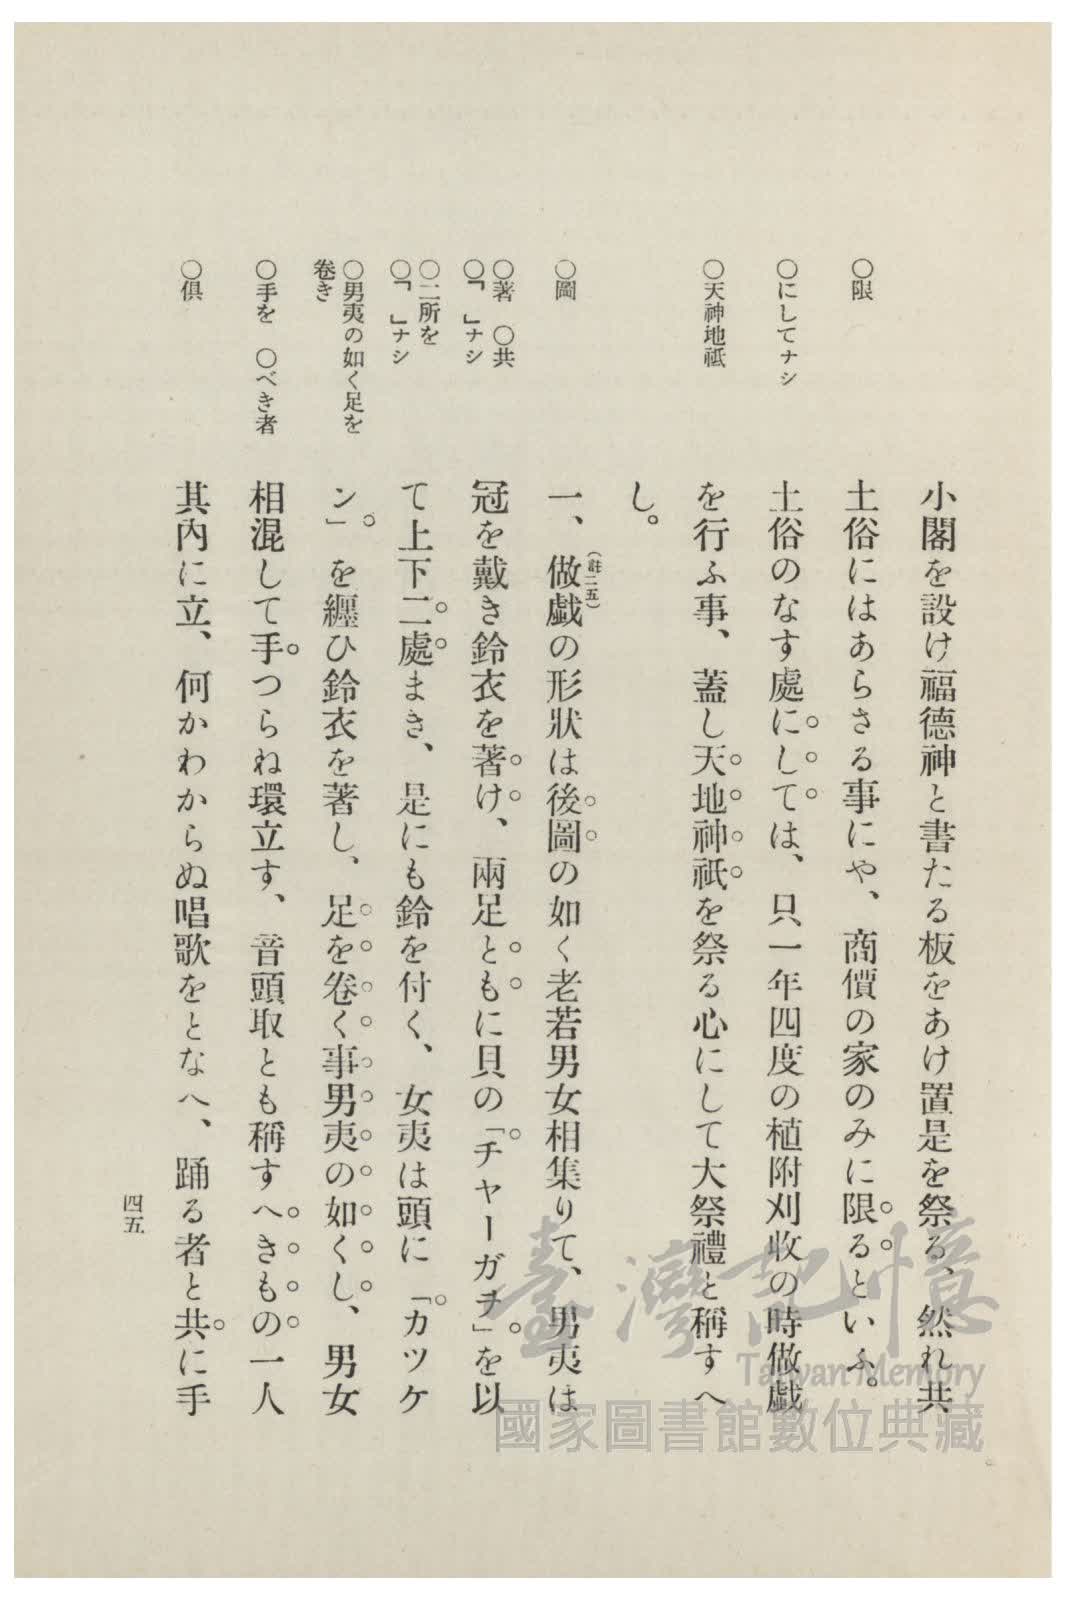 小閣を設け福德神と書たる板をあけ置是を祭る、然れ共
土俗にはあらさる事にや、商價の家のみに限るといふ。
土俗のなす處にしては、只一年四度の植附刈收の時做戯
を行ふ事、蓋し天地神祇を祭る心にして大祭禮と稱すへ
し。
一、做戯の形狀は後圖の如く老若男女相集りて、男夷は
(註二五)
冠を戴き鈴衣を著け、兩足ともに貝の「チャーガチ」を以
て上下二處まき、是にも鈴を付く、女夷は頭に「カツケ
ン」を纒ひ鈴衣を著し、足を卷く事男夷の如くし、男女
相混して手つらね環立す、音頭取とも稱すへきもの一人
其內に立、何かわからぬ唱歌をとなへ、踊る者と共に手
○限
○にしてナシ
○天神地祗
○圖
○著 ○共
○「 」ナシ
○二所を
○「 」ナシ
○男夷の如く足を
卷き
○手を ○べき者
○俱
四五
臺灣記憶
Taiwan Memory
國家圖書館數位典藏